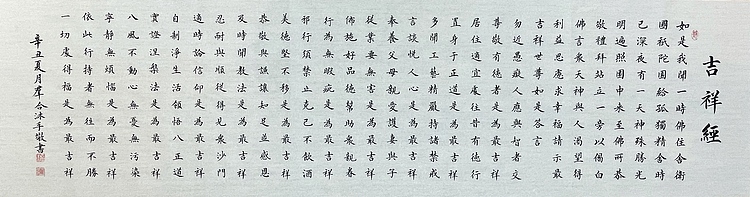 吉祥經
如是我聞一時佛住舍衛
國祇陀園給孤獨精舍時
已深夜有一天神殊勝光
明遍照園中來至佛所恭
敬禮拜站立一旁以偈白
佛言眾天神與人渴望得
利益思慮求幸福請示最
吉祥世尊如是答言
勿近愚癡人應與智者交
尊敬有德者是為最吉祥
居住適宜處往昔有德行
置身於正道是為最吉祥
多聞工藝精嚴持諸禁戒
言談悅人心是為最吉祥
奉養父母親愛護妻與子
從業要無害是為最吉祥
佈施好品德幫助眾親眷
行為無瑕疵是為最吉祥
邪行須禁止克己不飲酒
美德堅不移是為最吉祥
恭敬與謙讓知足並感恩
及時聞教法是為最吉祥
忍耐與順從得見眾沙門
適時論信仰是為最吉祥
自制淨生活領悟八正道
實證涅槃法是為最吉祥
八風不動心無憂無污染
寧靜無煩惱是為最吉祥
依此行持者無往而不勝
一切處得福是為最吉祥
辛丑夏月群合沐手敬書